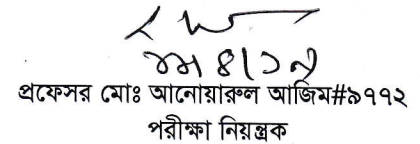 প্রফেসর মোঃ আনোয়ারুল আজিম#৯৭৭২
পরীক্ষা নিয়ন্ত্রক